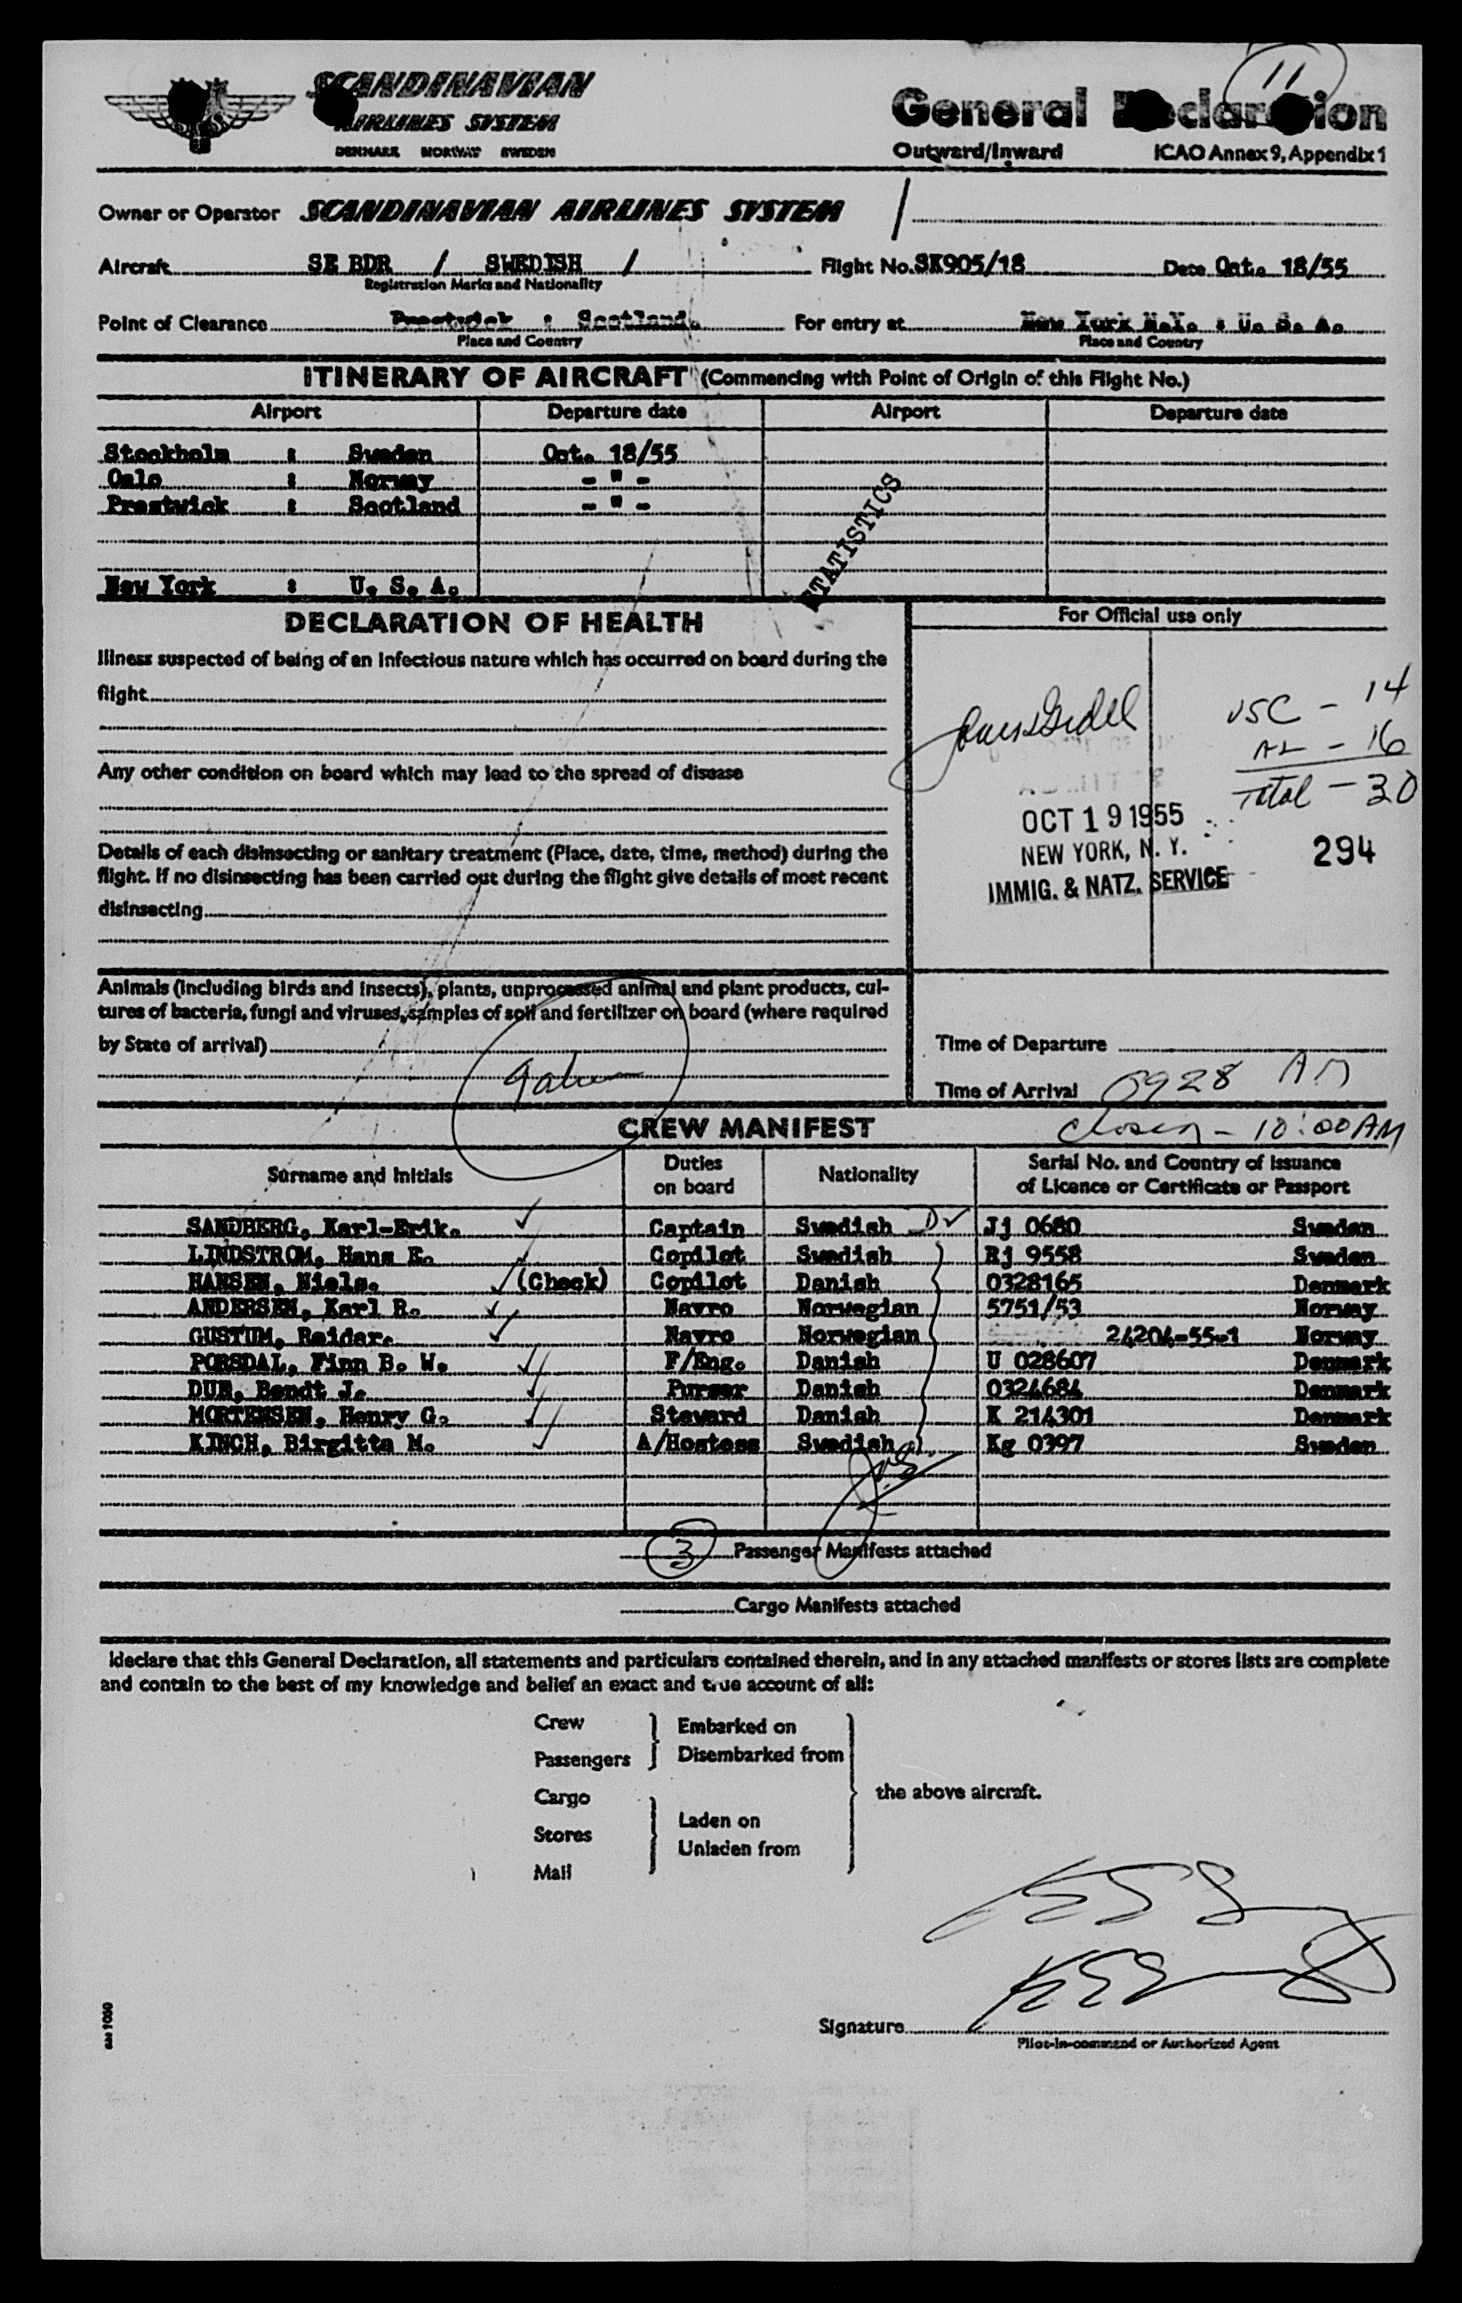 11
SCANDINAVIAN
AIRLINES SYSTEM
DENMARK NORWAY SWEDEN
General Declaration
Outward/Inward ICAO Annex 9, Appendix 1
Owner or Operator SCANDINAVIAN AIRLINES SYSTEM /
Aircraft SE BDR / SWEDISH / Flight No. SK905/18 Date Oct. 18/55
Registration Marks and Nationality
Point of Clearance Prestwick : Scotland. For entry at New York N.Y. : U. S. A.
Place and Country Place and Country
ITINERARY OF AIRCRAFT (Commencing with Point of Origin of this Flight No.)
Airport Departure date Airport Departure date
Stockholm : Sweden Oct. 18/55
Oslo : Norway - " -
Prestwick : Scotland - " -
STATISTICS
New York : U. S. A.
DECLARATION OF HEALTH
For Official use only
Illness suspected of being of an infectious nature which has occurred on board during the
flight
Any other condition on board which may lead to the spread of disease
Details of each disinsecting or sanitary treatment (Place, date, time, method) during the
flight. If no disinsecting has been carried out during the flight give details of most recent
disinsecting
USC - 14
AL - 16
Total - 30
OCT 19 1955
NEW YORK, N. Y.
IMMIG. & NATZ. SERVICE
294
Animals (including birds and insects), plants, unprocessed animal and plant products, cul-
tures of bacteria, fungi and viruses, samples of soil and fertilizer on board (where required
by State of arrival)
Time of Departure
Time of Arrival 0928 AM
CREW MANIFEST
Closed - 10:00 AM
Surname and Initials Duties on board Nationality Serial No. and Country of Issuance of Licence or Certificate or Passport
SANDBERG, Karl-Erik. Captain Swedish D Jj 0680 Sweden
LINDSTROM, Hans E. Copilot Swedish Rj 9558 Sweden
HANSEN, Niels. (Check) Copilot Danish 0328165 Denmark
ANDERSEN, Karl R. Navro Norwegian 5751/53 Norway
GUSTUM, Reidar. Navro Norwegian 24204-55-1 Norway
PORSDAL, Finn B. W. F/Eng. Danish U 028607 Denmark
DUE, Bendt J. Purser Danish 0324684 Denmark
MORTENSEN, Henry G. Steward Danish K 214301 Denmark
KINCH, Birgitta M. A/Hostess Swedish Kg 0397 Sweden
3 Passenger Manifests attached
Cargo Manifests attached
I declare that this General Declaration, all statements and particulars contained therein, and in any attached manifests or stores lists are complete
and contain to the best of my knowledge and belief an exact and true account of all:
Crew
Passengers
Embarked on
Disembarked from
Cargo
Stores
Mail
Laden on
Unladen from
the above aircraft.
Signature
Pilot-in-command or Authorized Agent
sas 1030